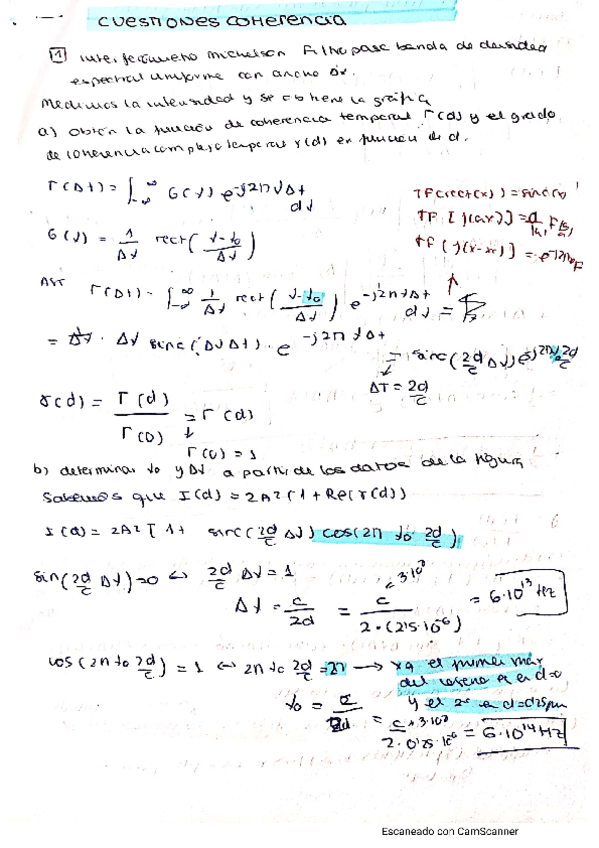 CUESTIONES COHERENCIA
1 Interferómetro Michelson Filtro pasa banda de densidad
espectral uniforme con ancho Δν.
Medimos la intensidad y se obtiene la gráfica
a) Obtén la función de coherencia temporal Γ(d) y el grado
de coherencia complejo temporal γ(d) en función de d.
Γ(Δt) = ∫_{-∞}^{∞} G(ν) e^{-j2πνΔt} dν
TF(rect(x)) = sinc(x)
G(ν) = 1/Δν rect((ν-ν0)/Δν)
Γ(Δt) = ∫_{-∞}^{∞} 1/Δν rect((ν-ν0)/Δν) e^{-j2πνΔt} dν =
= 1/Δν · Δν sinc(ΔνΔt) · e^{-j2πνΔt}
= sinc(2d/c Δν) e^{j2πν0 2d/c}
ΔT = 2d/c
γ(d) = Γ(d)/Γ(0) = Γ(d)
Γ(0) = 1
b) determinar ν0 y Δν a partir de los datos de la figura
Sabemos que I(d) = 2A²(1 + Re(γ(d))
I(d) = 2A² [1 + sinc(2d/c Δν) cos(2π ν0 2d/c)
sin(2d/c Δν) = 0 ↔ 2d/c Δν = 1
Δν = c/2d = c/(2·(2'5·10^-6)) = 6·10^13 Hz
3·10^8
cos(2π ν0 2d/c) = 1 ↔ 2π ν0 2d/c = 2π → ya el primer máx
del coseno es en d=0
y el 2º en d=0'25μm
ν0 = c/2d = c/(2·0'25·10^-6) = 6·10^14 Hz
3·10^8
Escaneado con CamScanner